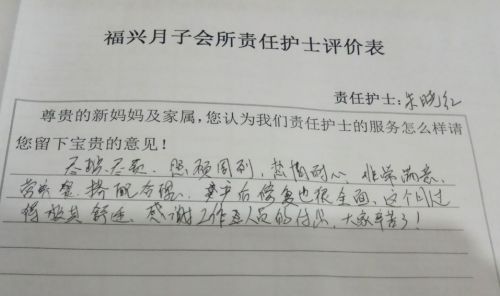 福兴月子会所责任护士评价表
责任护士:朱晓红
尊贵的新妈妈及家属,您认为我们责任护士的服务怎么样请
您留下宝贵的意见!
尽职尽责、照顾周到,热情耐心 非常满意、
营养 搭配合理、产后修复也很全面、这个月过
得极其舒适、感谢工作人员的付出,大家辛苦了!